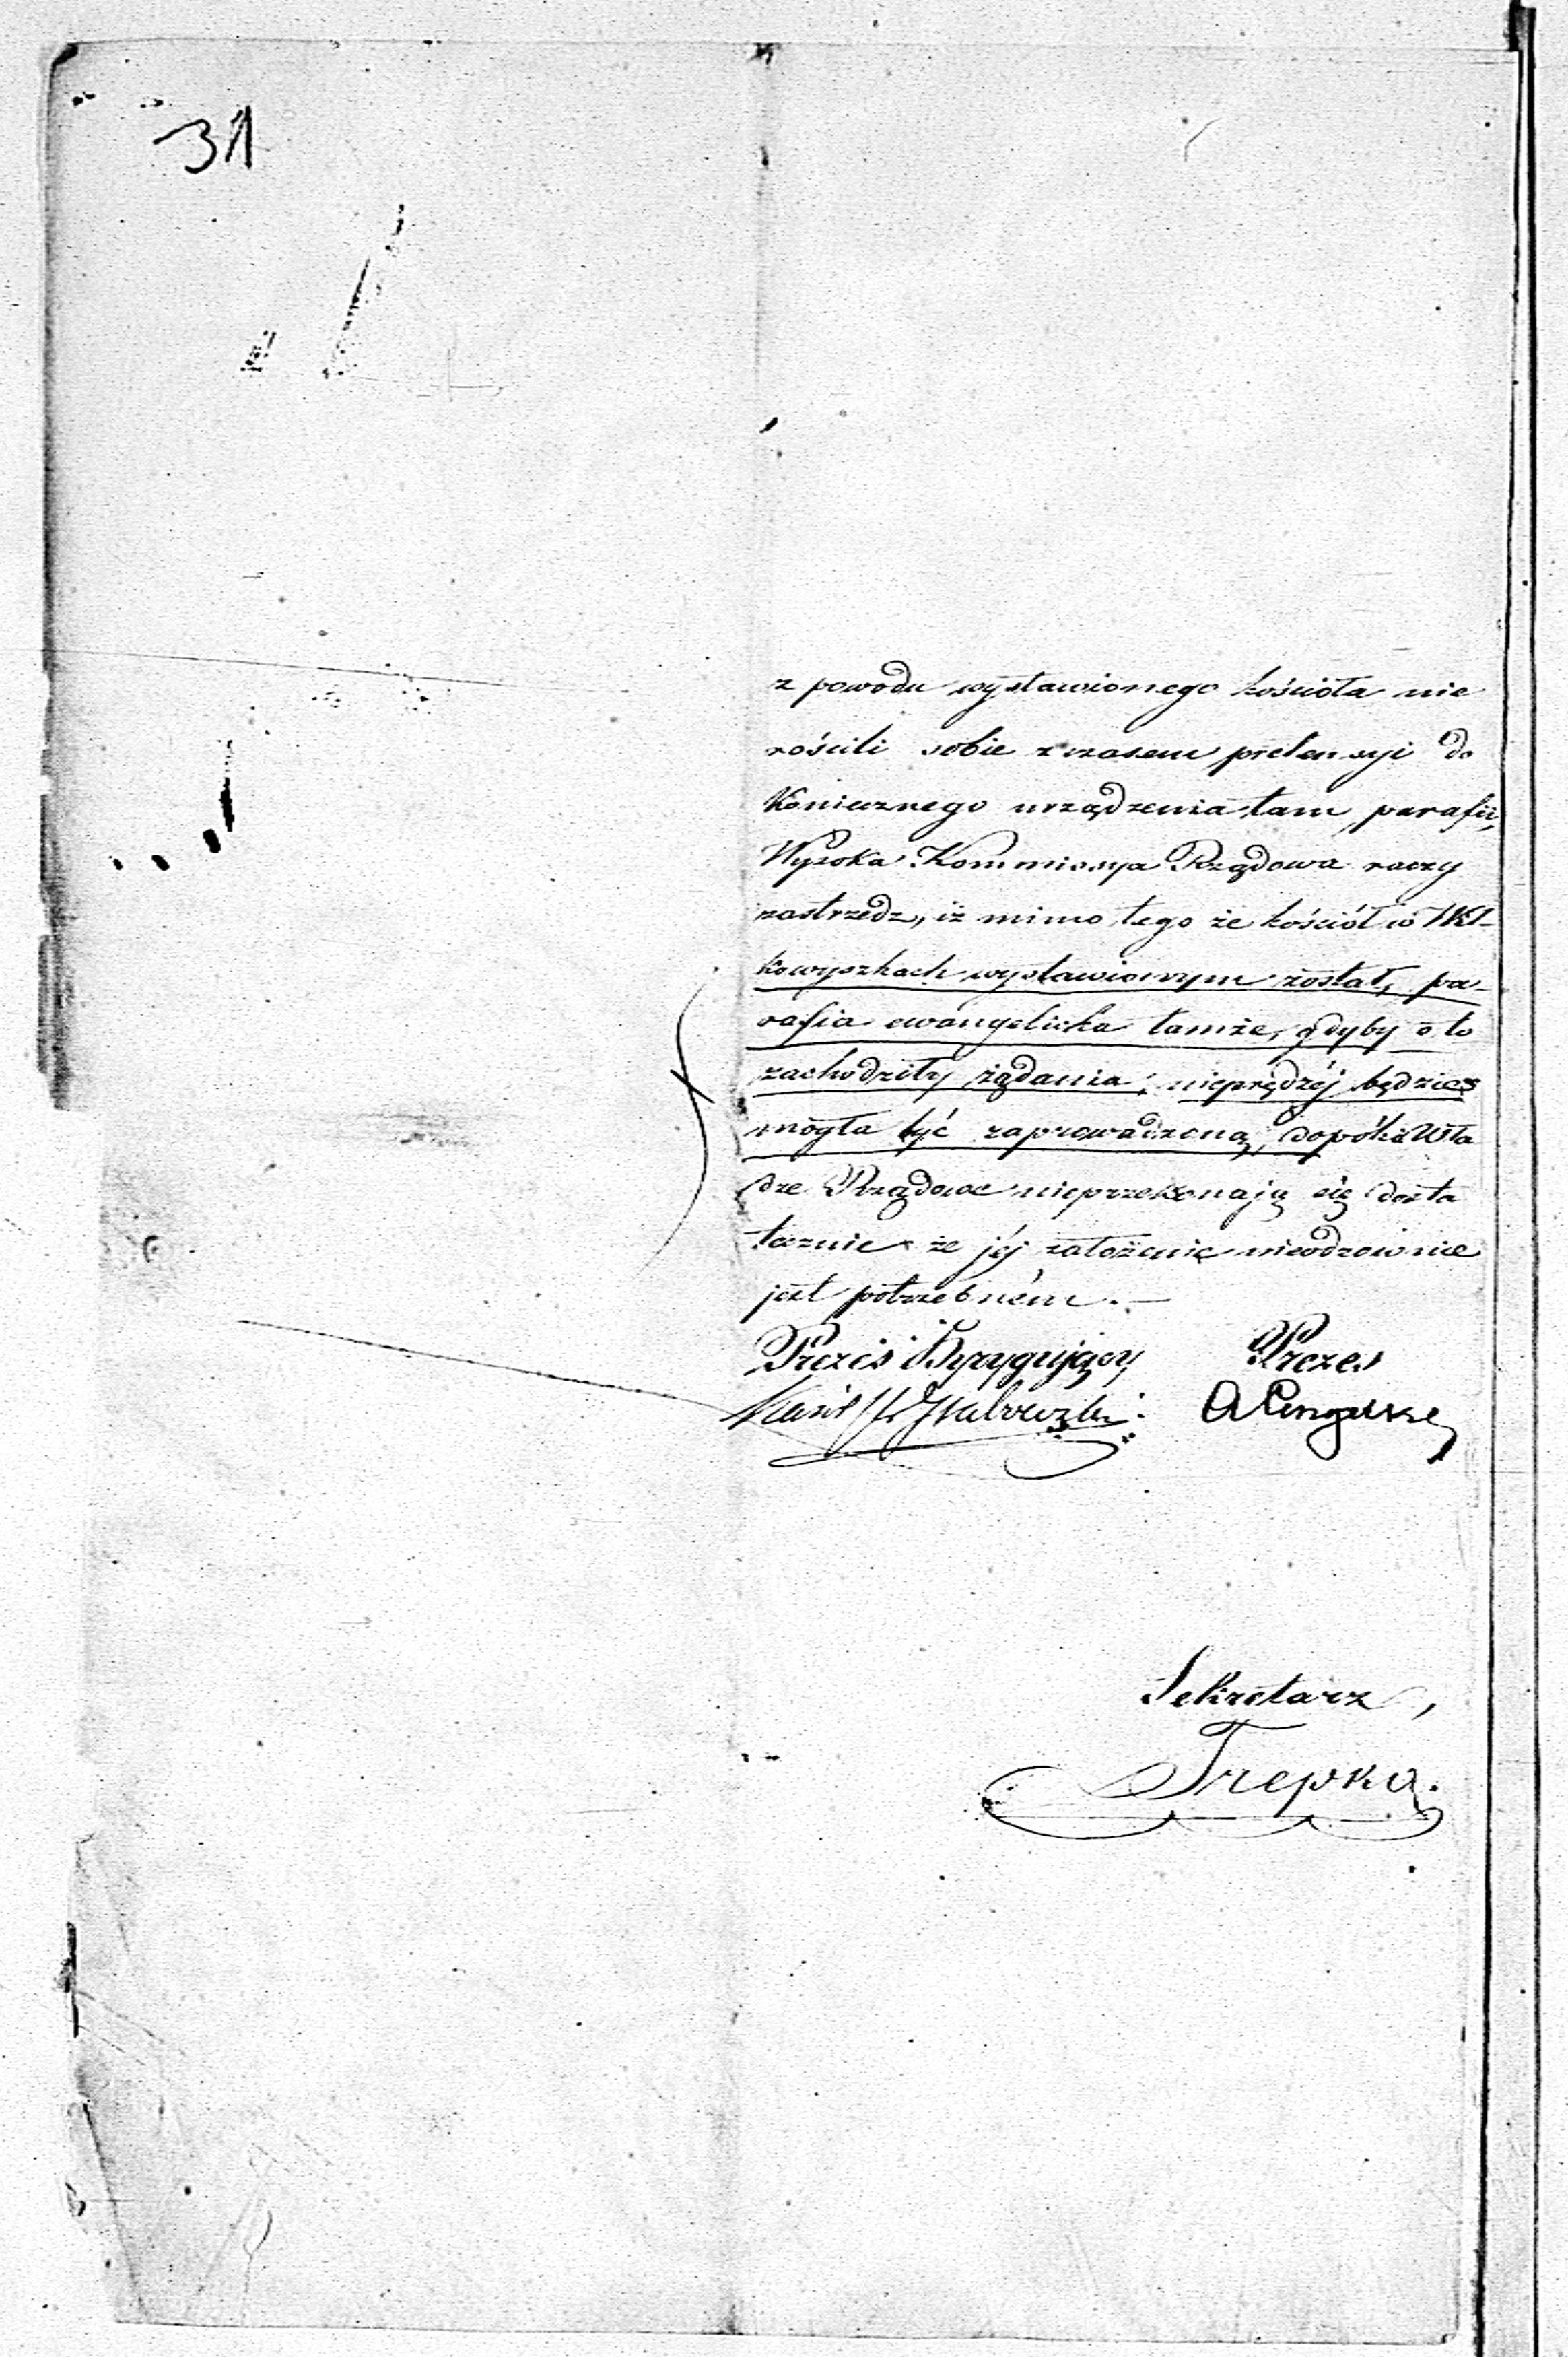 31
z powodu wystawionego kościoła nie
rościli sobie z czasem pretensyi do
Koniecznego urządzenia tam parafii,
Wysoka Kommissya Rządowa raczy
zastrzedz, iż mimo tego że kościół w Wił-
kowyszkach wystawionym został, pa-
rafia ewangelicka tamże, gdyby o to
zachodziły żądania, nieprędzéj będzie
mogła być zaprowadzoną, dopóki Wła
dze Rządowe nieprzekonają się dosta
tecznie że jéj założenie nieodzownie
jest potrzebném. —
Prezes Dyrygujący Prezes
Sekretarz,
Trepka.